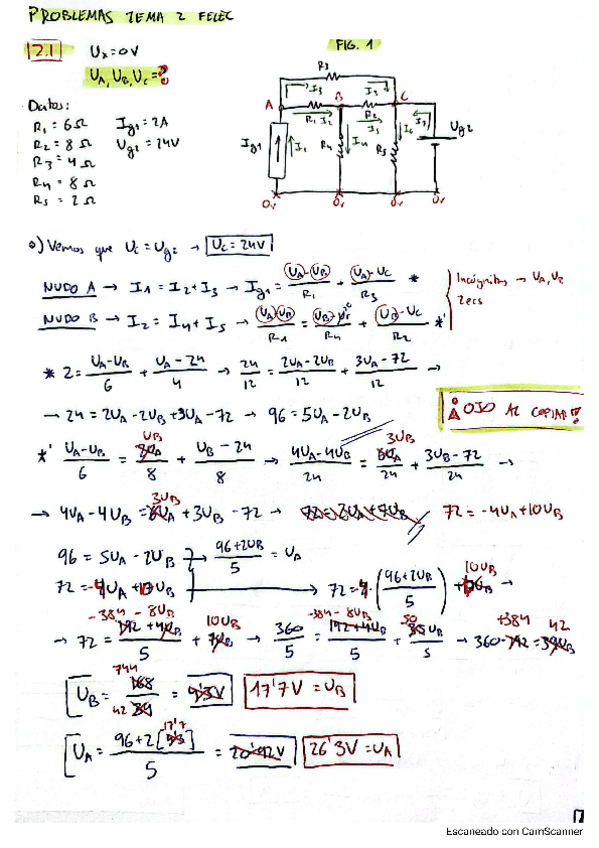 PROBLEMAS TEMA 2 FELEC
2.1 Ux=0V
UA, UB, UC=?
FIG. 1
Datos:
R1 = 6Ω Ig1 = 2A
R2 = 8Ω Ug2 = 24V
R3 = 4Ω
R4 = 8Ω
R5 = 2Ω
R3
I3 I3
A B C
R1 I2 R2 I5
Ig1 I1 R4 I4 R5 I6 Ug2
0V 0V 0V 0V
o) Vemos que UC = Ug2 → UC = 24V
NUDO A → I1 = I2 + I3 → Ig1 = (UA-UB)/R1 + (UA-UC)/R3 *
Incógnitas → UA,
2 ecs
NUDO B → I2 = I4 + I5 → (UA-UB)/R1 = (UB-Ux)/R4 + (UB-UC)/R2 *'
* 2 = (UA-UB)/6 + (UA-24)/4 → 24/12 = (2UA-2UB)/12 + (3UA-72)/12 →
→ 24 = 2UA-2UB+3UA-72 → 96 = 5UA-2UB
OJO AL COPIAR!!
*' (UA-UB)/6 = UB/8 + (UB-24)/8 → (4UA-4UB)/24 = 3UB/24 + (3UB-72)/24 →
→ 4UA-4UB = 3UB+3UB-72 → 72 = -4UA+10UB
96 = 5UA-2UB → (96+2UB)/5 = UA
72 = -4UA+10UB → 72 = -4·((96+2UB)/5) + 10UB →
→ 72 = (-384-8UB)/5 + 10UB → 360/5 = (-384-8UB)/5 + 50UB/5 → 360+384 = 42UB
UB = 744/42 = 17'7V = UB
UA = (96+2[17'7])/5 = 20'92V 26'3V = UA
Escaneado con CamScanner